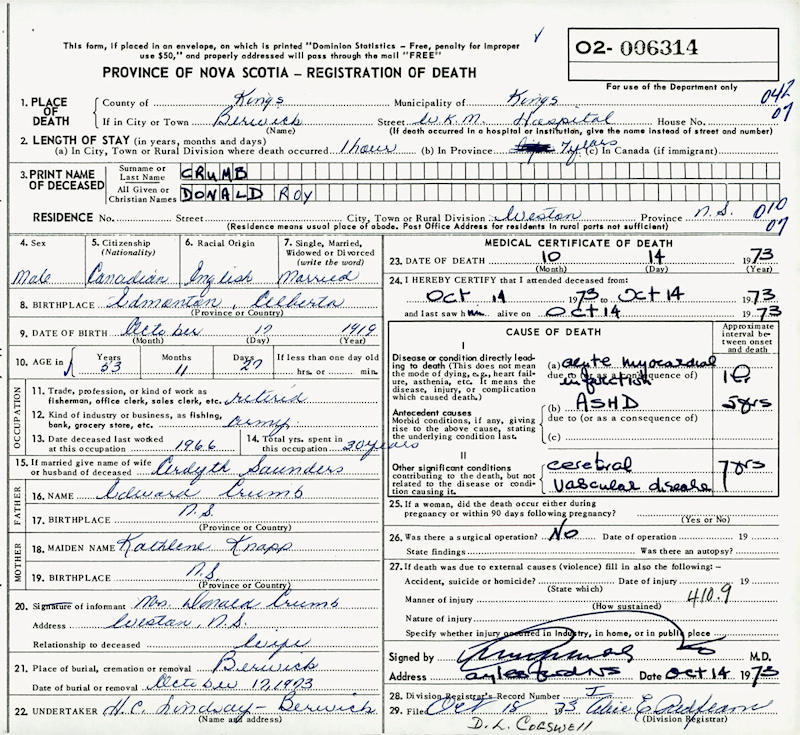 This form, if placed in an envelope, on which is printed "Dominion Statistics – Free, penalty for improper
use $50," and properly addressed will pass through the mail "FREE"
02- 006314
PROVINCE OF NOVA SCOTIA – REGISTRATION OF DEATH
For use of the Department only
1. PLACE OF DEATH
County of Kings Municipality of Kings 042
If in City or Town Berwick Street W.K.M. Hospital House No. 07
(Name) (If death occurred in a hospital or institution, give the name instead of street and number)
2. LENGTH OF STAY (in years, months and days)
(a) In City, Town or Rural Division where death occurred 1 hour (b) In Province 7 years (c) In Canada (if immigrant)
3. PRINT NAME OF DECEASED
Surname or Last Name CRUMB
All Given or Christian Names DONALD ROY
RESIDENCE No. Street City, Town or Rural Division Weston Province N.S. 010
(Residence means usual place of abode. Post Office Address for residents in rural parts not sufficient) 07
4. Sex
Male
5. Citizenship (Nationality)
Canadian
6. Racial Origin
English
7. Single, Married, Widowed or Divorced (write the word)
Married
8. BIRTHPLACE Edmonton, Alberta
(Province or Country)
9. DATE OF BIRTH October 17 1919
(Month) (Day) (Year)
10. AGE in Years 53 Months 11 Days 27 If less than one day old hrs. or min.
OCCUPATION
11. Trade, profession, or kind of work as fisherman, office clerk, sales clerk, etc. retired
12. Kind of industry or business, as fishing, bank, grocery store, etc. army
13. Date deceased last worked at this occupation 1966
14. Total yrs. spent in this occupation 30 years
15. If married give name of wife or husband of deceased Ardyth Saunders
FATHER
16. NAME Edward Crumb
17. BIRTHPLACE N.S.
(Province or Country)
MOTHER
18. MAIDEN NAME Kathlene Knapp
19. BIRTHPLACE N.S.
(Province or Country)
20. Signature of informant Mrs. Donald Crumb
Address Weston, N.S.
Relationship to deceased Wife
21. Place of burial, cremation or removal Berwick
Date of burial or removal October 17, 1973
22. UNDERTAKER H.C. Lindsay - Berwick
(Name and address)
MEDICAL CERTIFICATE OF DEATH
23. DATE OF DEATH 10 14 1973
(Month) (Day) (Year)
24. I HEREBY CERTIFY that I attended deceased from:
Oct 14 1973 to Oct 14 1973
and last saw him alive on Oct 14 1973
CAUSE OF DEATH
Approximate interval between onset and death
I
Disease or condition directly leading to death (This does not mean the mode of dying, e.g., heart failure, asthenia, etc. It means the disease, injury, or complication which caused death.)
(a) acute myocardial
due to (or as a consequence of)
infarction
Antecedent causes
Morbid conditions, if any, giving rise to the above cause, stating the underlying condition last.
(b) ASHD 5 yrs
due to (or as a consequence of)
(c)
II
Other significant conditions
contributing to the death, but not related to the disease or condition causing it.
cerebral 7 yrs
vascular disease
25. If a woman, did the death occur either during pregnancy or within 90 days following pregnancy?
(Yes or No)
26. Was there a surgical operation? No Date of operation 19
State findings Was there an autopsy?
27. If death was due to external causes (violence) fill in also the following:–
Accident, suicide or homicide? Date of injury 19
(State which)
Manner of injury 410.9
(How sustained)
Nature of injury
Specify whether injury occurred in Industry, in home, or in public place
Signed by M.D.
Address Aylesford NS Date Oct 14 1973
28. Division Registrar's Record Number
29. Filed Oct 18 73
(Division Registrar)
D.L. COGSWELL